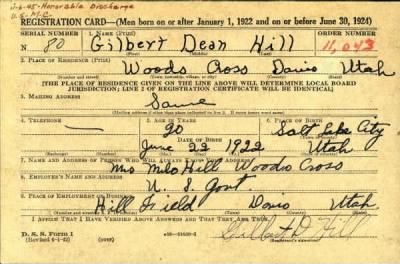 2-6-45-Honorable Discharge
U.S.M.C.
REGISTRATION CARD—(Men born on or after January 1, 1922 and on or before June 30, 1924)
SERIAL NUMBER 1. NAME (Print) ORDER NUMBER
N 80 Gilbert Dean Hill 11,043
2. PLACE OF RESIDENCE (Print)
Woods Cross Davis Utah
[THE PLACE OF RESIDENCE GIVEN ON THE LINE ABOVE WILL DETERMINE LOCAL BOARD
JURISDICTION; LINE 2 OF REGISTRATION CERTIFICATE WILL BE IDENTICAL]
3. MAILING ADDRESS
Same
[Mailing address if other than place indicated on line 2. If same insert word same]
4. TELEPHONE 5. AGE IN YEARS 6. PLACE OF BIRTH
— 20 Salt Lake City
DATE OF BIRTH
June 22 1922 Utah
7. NAME AND ADDRESS OF PERSON WHO WILL ALWAYS KNOW YOUR ADDRESS
Mrs Milo Hill Woods Cross
8. EMPLOYER'S NAME AND ADDRESS
U. S. Govt
9. PLACE OF EMPLOYMENT OR BUSINESS
Hill Field Davis Utah
I AFFIRM THAT I HAVE VERIFIED ABOVE ANSWERS AND THAT THEY ARE TRUE.
D. S. S. Form 1
(Revised 6-1-42) Gilbert D. Hill
(Registrant's signature)